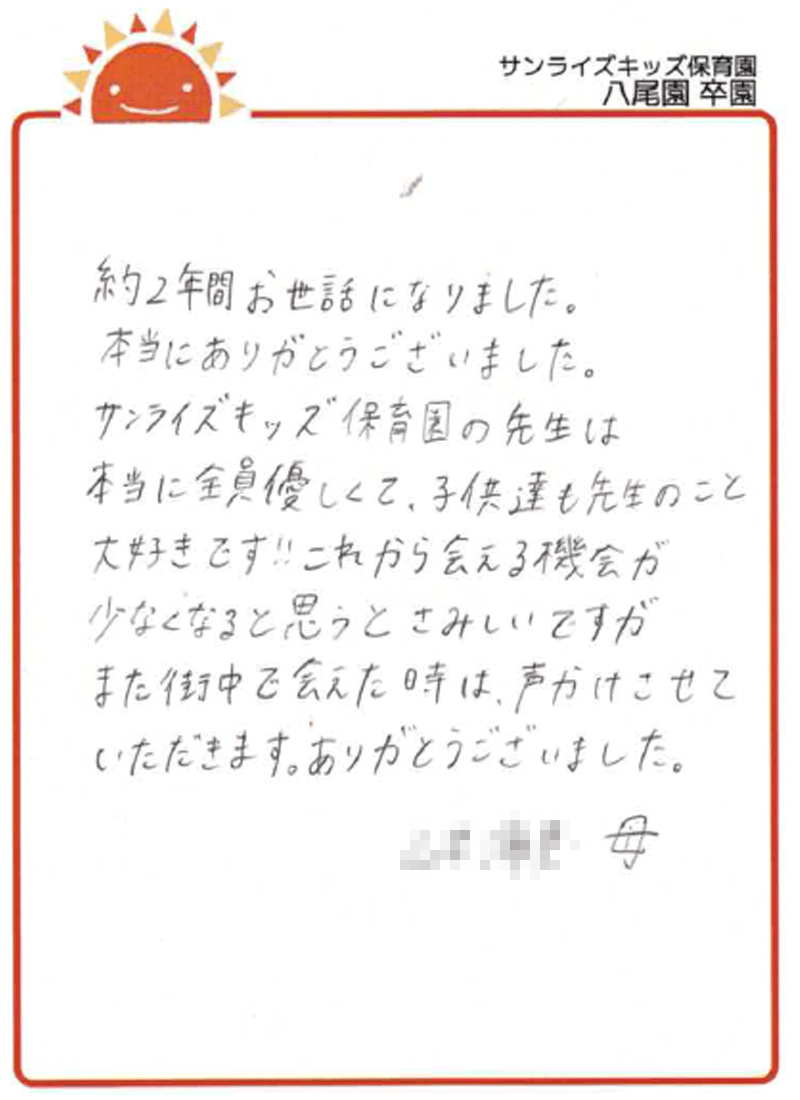 サンライズキッズ保育園
八尾園 卒園
約2年間お世話になりました。
本当にありがとうございました。
サンライズキッズ保育園の先生は
本当に全員優しくて、子供達も先生のこと
大好きです!!これから会える機会が
少なくなると思うとさみしいですが
また街中で会えた時は、声かけさせて
いただきます。ありがとうございました。
母